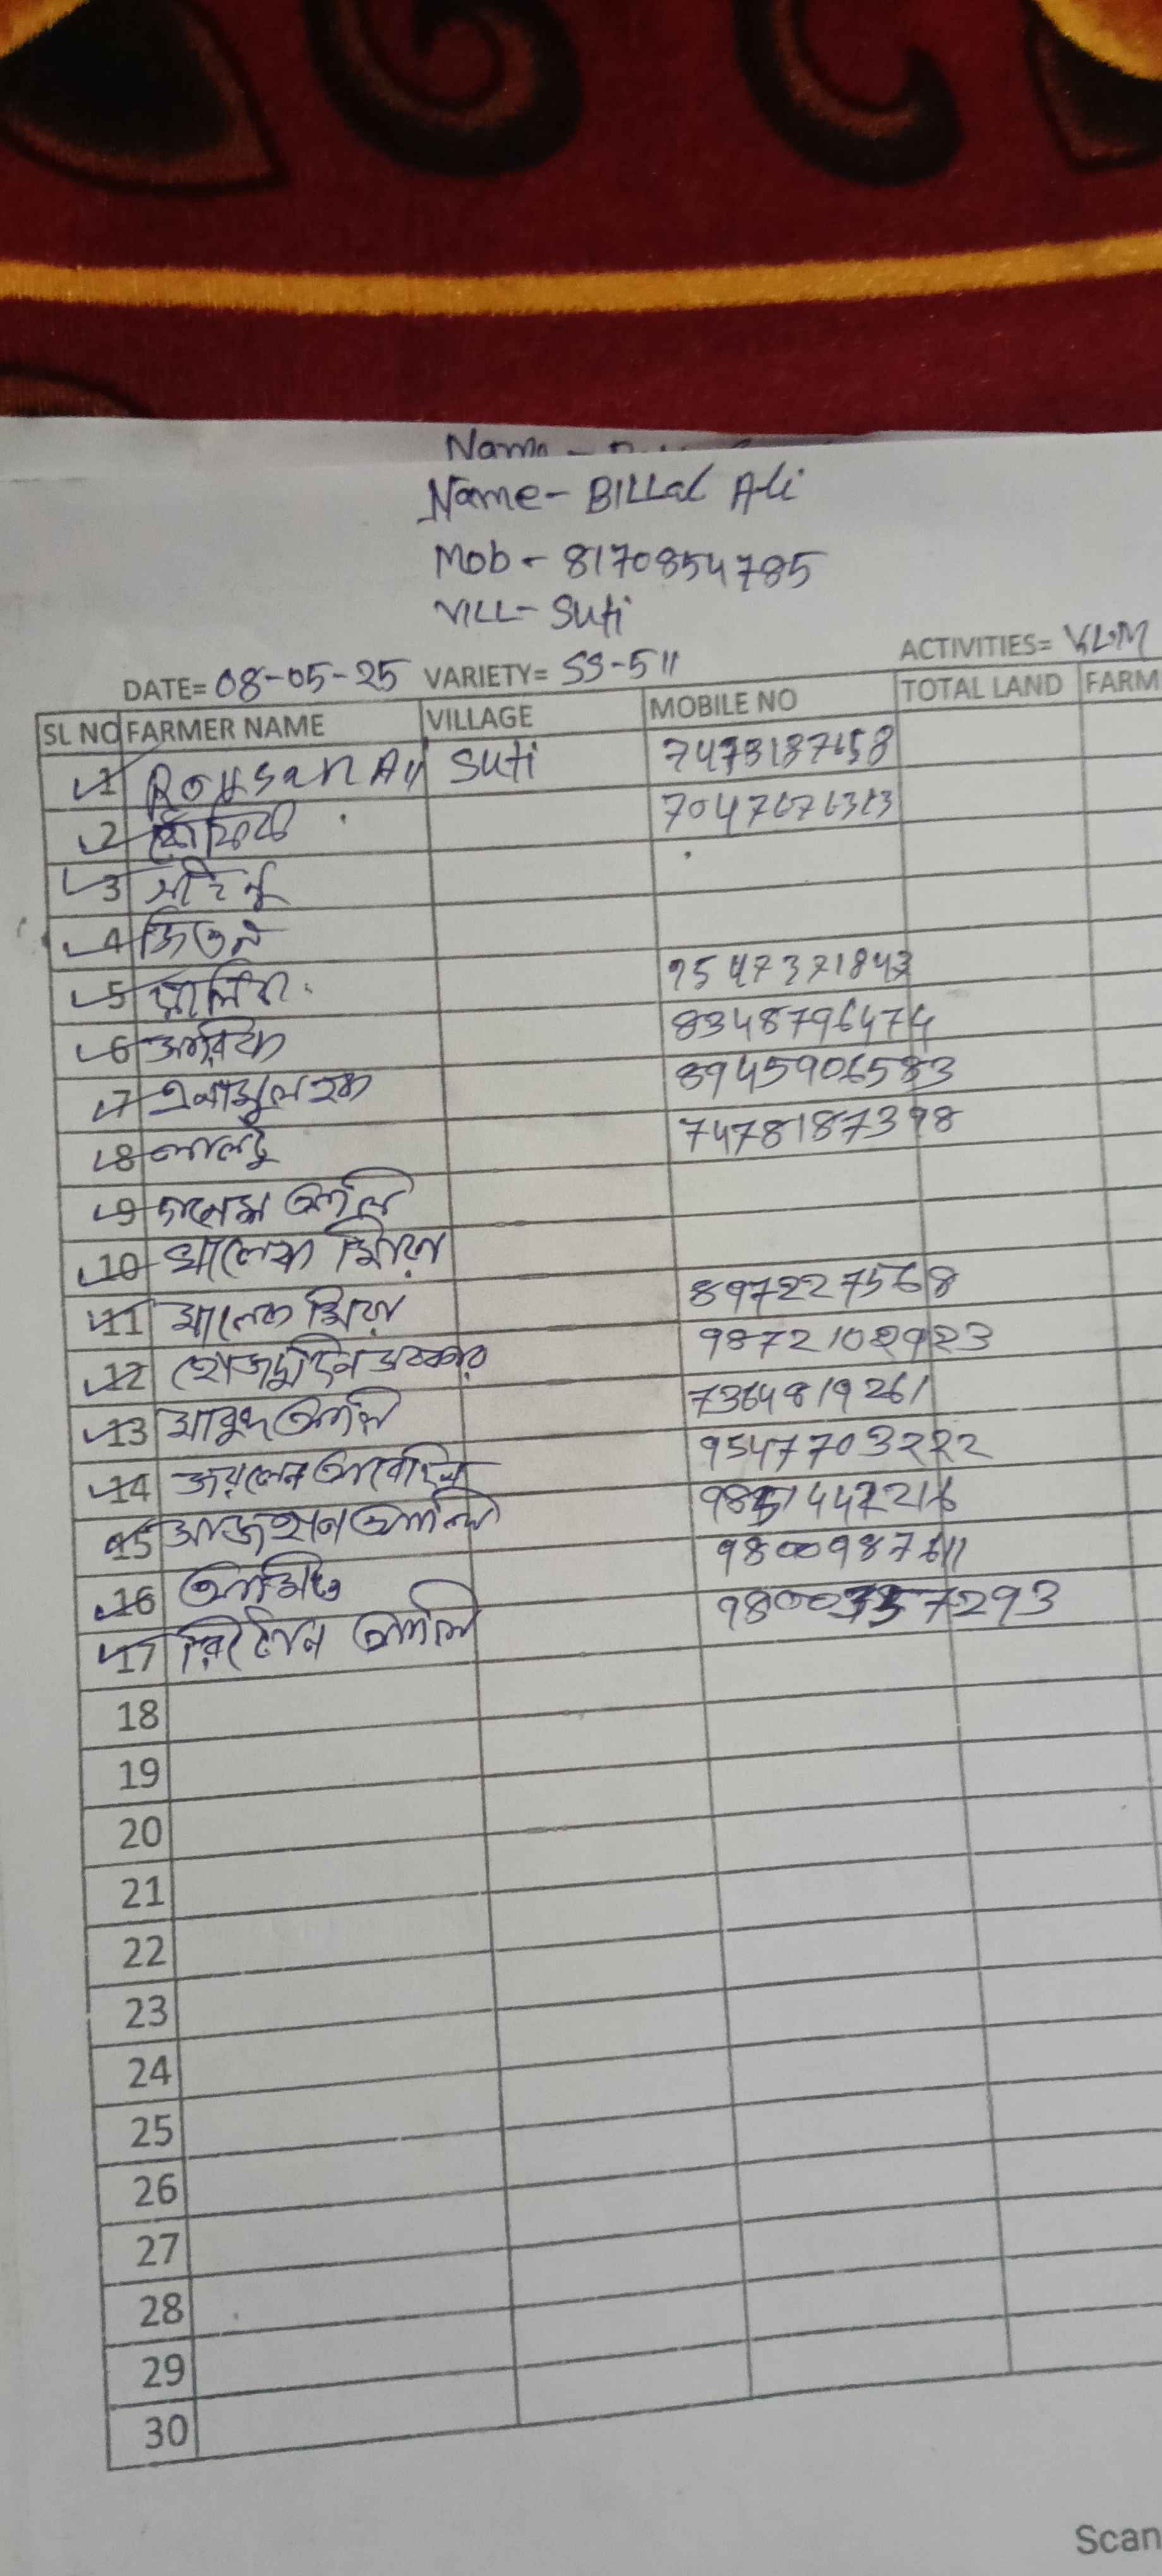 Name -
Name- BILLal Ali
Mob - 8170854785
VILL- Suti
DATE= 08-05-25 VARIETY= SS-511 ACTIVITIES= VLM
SL NO FARMER NAME VILLAGE MOBILE NO TOTAL LAND FARM
1 Rousan Ali Suti 7473187658
2 7047676313
3
4
5 মালিক 9547371843
6 আরিফ 8348796474
7 এনামুল হক 8945906583
8 লালটু 7478187398
9 আলি
10 খালেক মিয়া
11 মালেক মিয়া 8972275668
12 সরকার 9872102923
13 মাবুদ আলি 7364819261
14 জয়লেন আবেদিন 9547703222
15 আলি
16 আমিত 9800987611
17 লিটন আলি
18
19
20
21
22
23
24
25
26
27
28
29
30
Scan